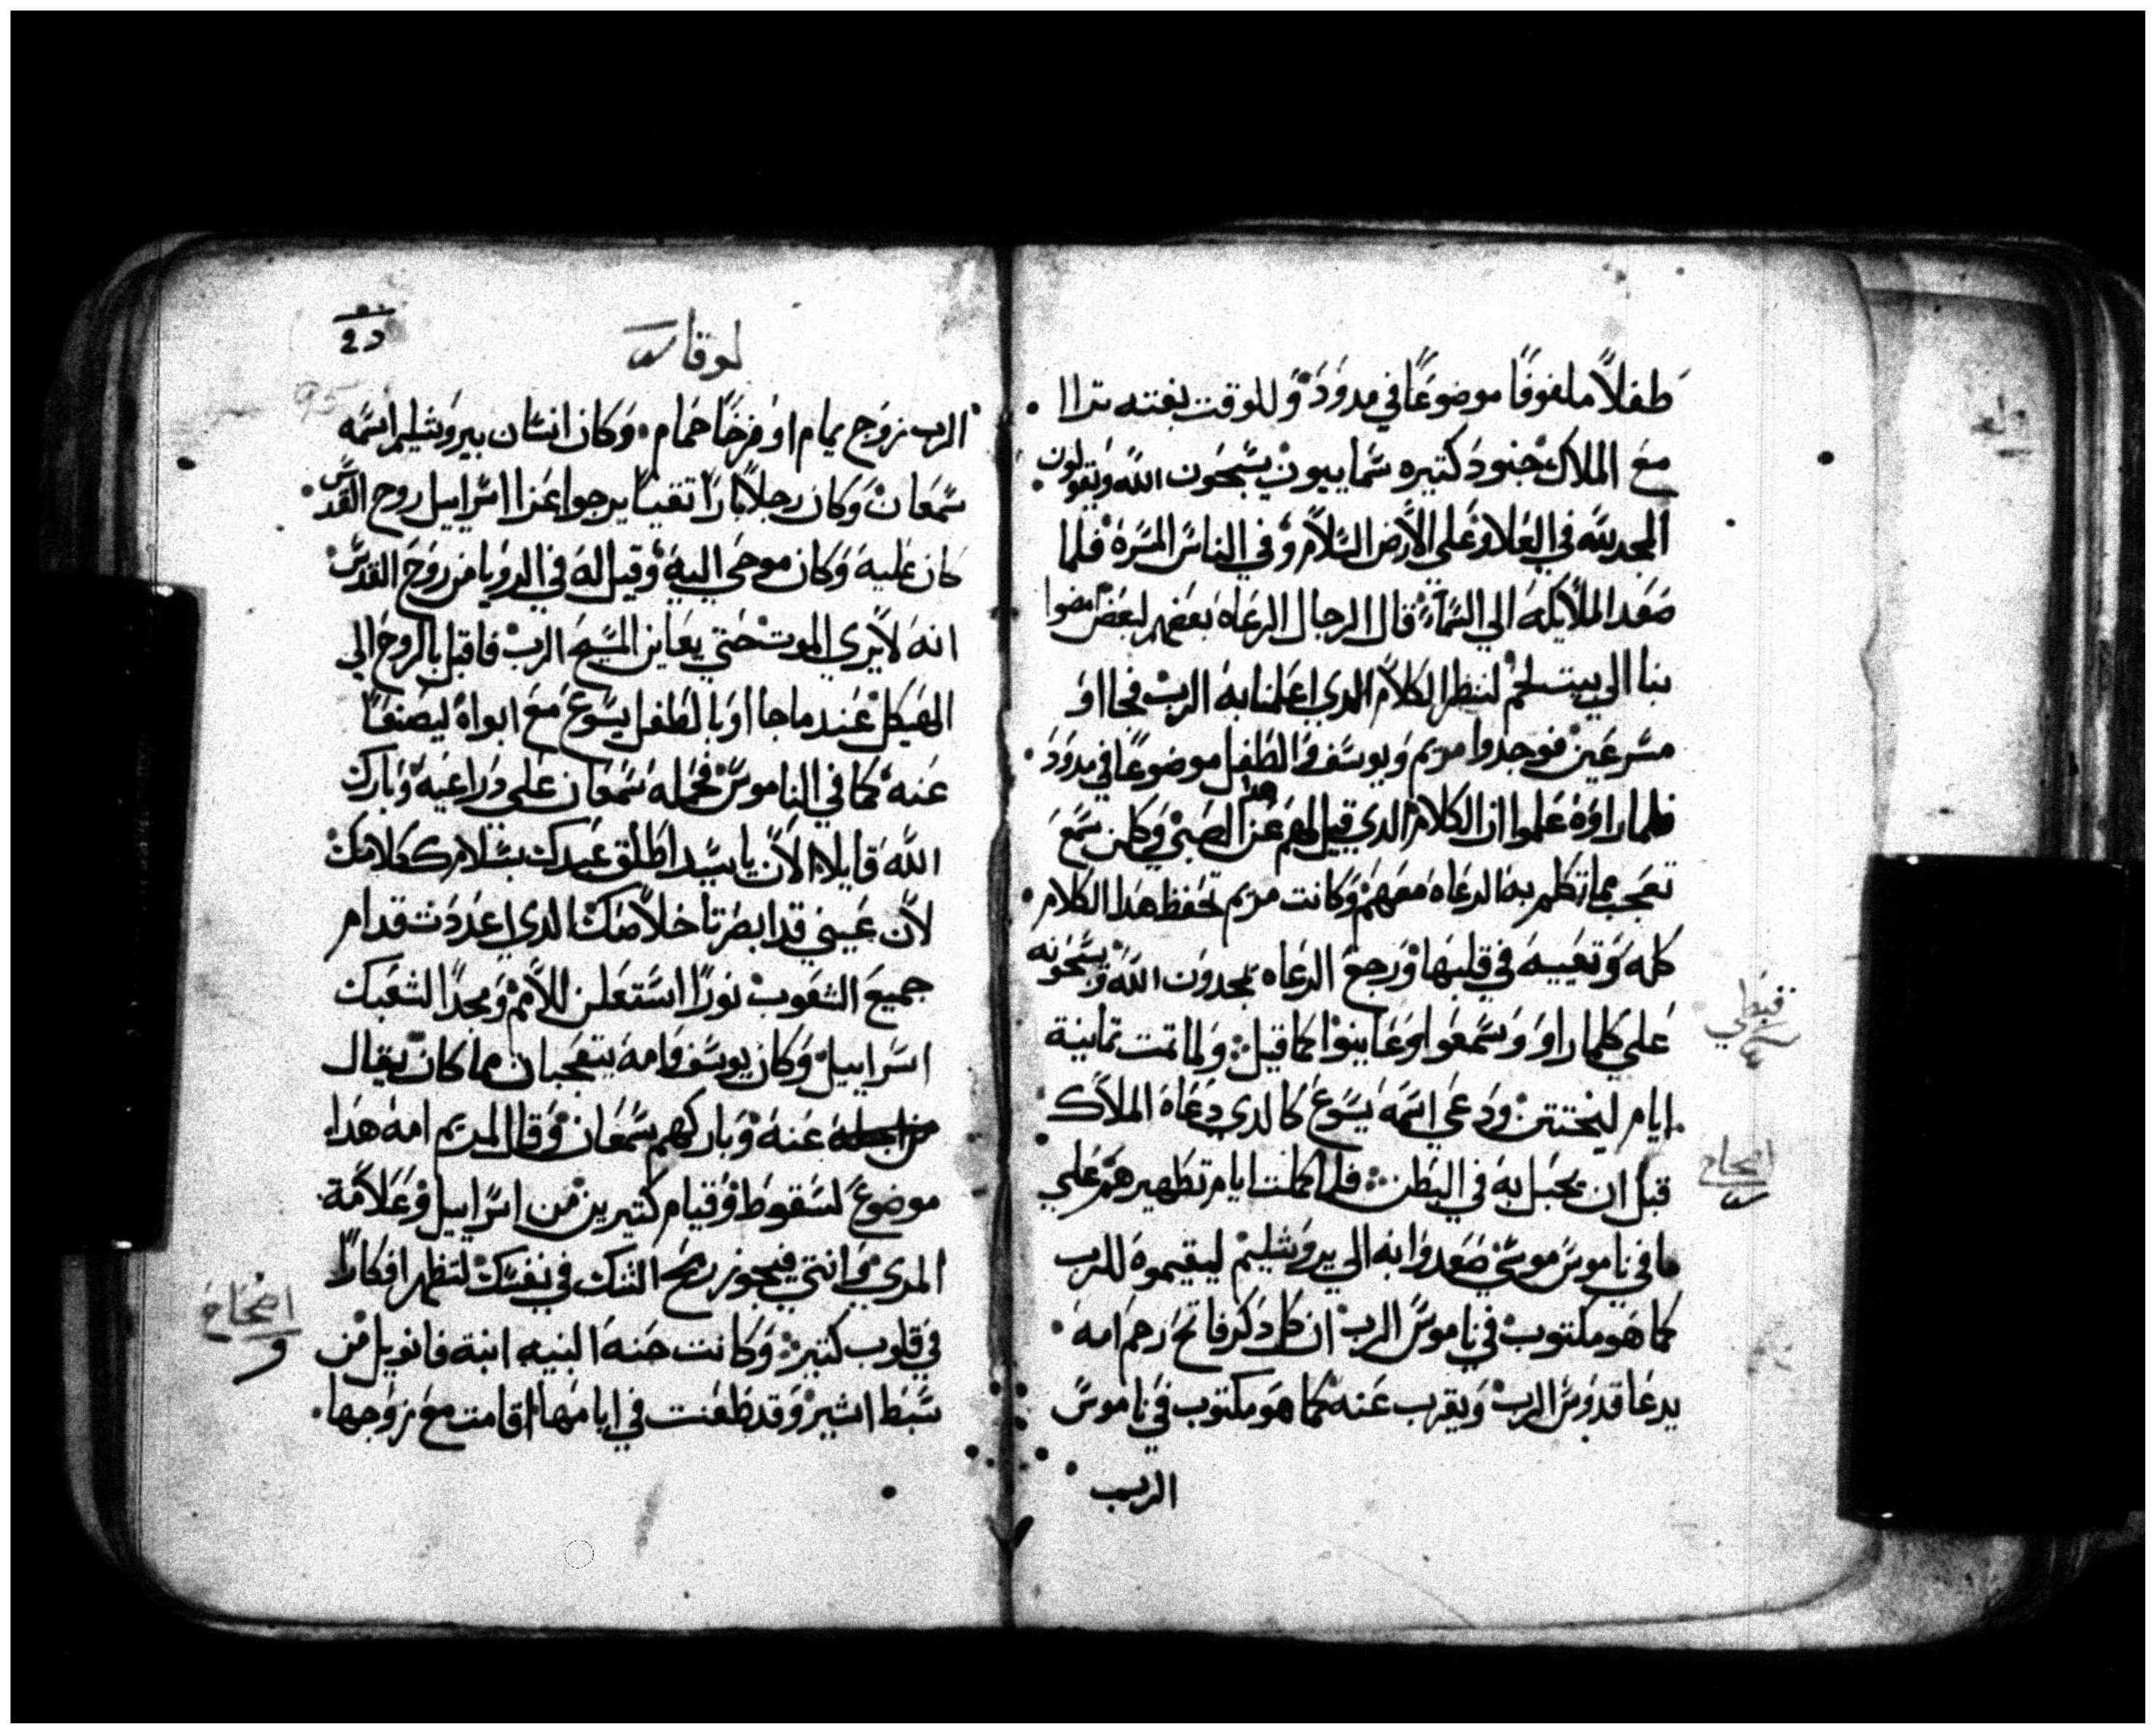 طفلاً ملفوفًا موضوعًا في مدود وللوقت بغته تراا
مع الملاك جنود كتيره سماييون يسبحون الله ويقولون
المجد لله في العلا وعلي الأرض السلام وفي الناس المسرة فلما
صعد الملأيكه الي السماء قال الرجال الرعاه بعضهم لبعض امضوا
بنا الي بيت لحم لننظر الكلام الدي اعلمنا به الرب فجااو
مسرعين فوجدوا مريم ويوسف والطفل موضوعًا في مدود
فلما راوه علموا ان الكلام الدي قيل لهم عن هدا الصبي وكلمن سمع
تعجب مما تكلم به الرعاه معهم وكانت مريم تحفظ هدا الكلام
كله وتعييه في قلبها ورجع الرعاه يمجدون الله ويسبحونه
علي كلما راوا وسمعوا وعاينوا كما قيل ولما تمت تمانية
ايام ليختتن ودعي اسمه يسوع كالدي دعاه الملاك
قبل ان يحبل به في البطن فلما كملت ايام تطهيرهم علي
ما في ناموس موسي صعدوا به الي يروشليم ليقيموه للرب
كما هو مكتوب في ناموس الرب ان كل دكر فاتح رحم امه
يدعا قدوس الرب ويقرب عنه كما هو مكتوب في ناموس
الرب
قبطي
اصحاح
لوقا
الرب زوج يمام او فرخا حمام وكان انسان بيروشليم اسمه
سمعان وكان رجلاً بارًا تقيًا يرجوا عزا اسراييل روح القدس
كان عليه وكان موحي اليه وقيل له في الرويا من روح القدس
انه لا يري الموت حتي يعاين المسيح الرب فاقبل بالروح الي
الهيكل عندما جااوا بالطفل يسوع مع ابواه ليصنعا
عنه كما في الناموس فحمله سمعان علي دراعيه وبارك
الله قايلا الآن يا سيد اطلق عبدك بسلام ككلامك
لأن عيني قد ابصرتا خلاصك الدي اعددت قدام
جميع الشعوب نورًا استعلن للأمم ومجدًا لشعبك
اسراييل وكان يوسف وامه يتعجبان مما كان يقال
عنه وباركهم سمعان وقال لمريم امه هدا
موضوع لسقوط وقيام كتيرين من اسراييل وعلامة
المري وانتي فيجوز رمح الشك في نفسك لتظهر افكارًا
في قلوب كتير وكانت حنه النبيه ابنة فانويل من
سبط اشير وقد طعنت في ايامها اقامت مع زوجها
اصحاح